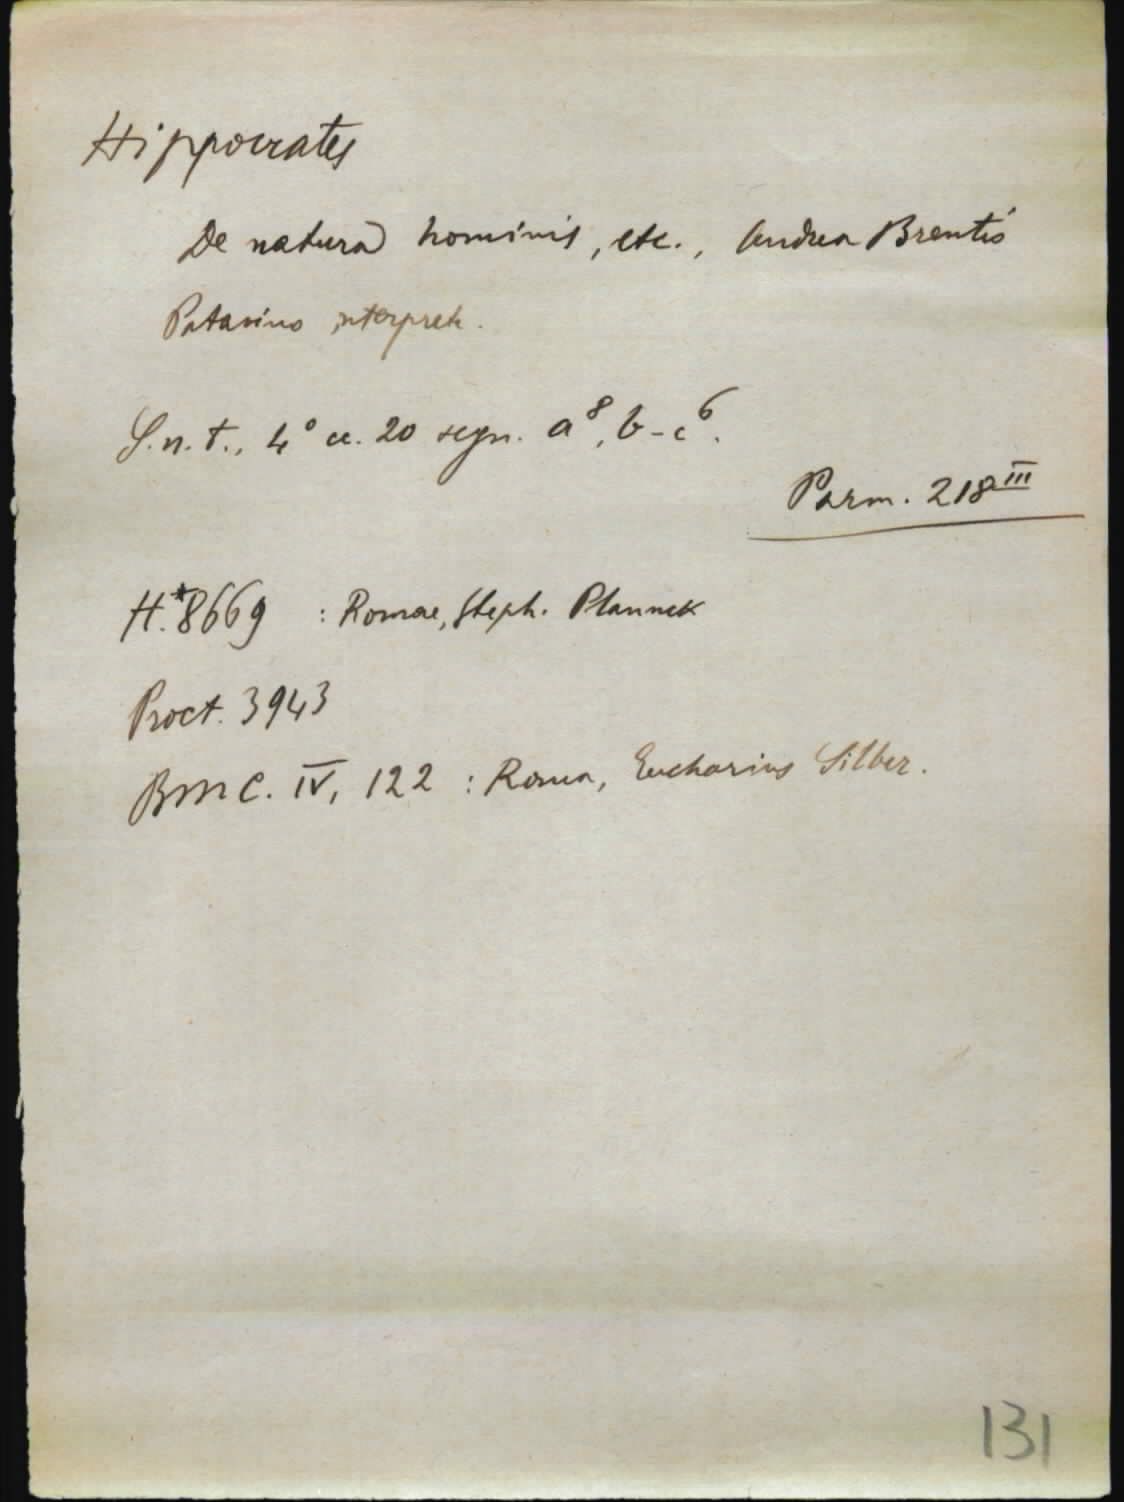 Hippocrates
De natura hominis, etc., Andrea Brentio
Patavino interprete.
S.n.t., 4° cc. 20 segn. a⁸, b-c⁶.
Parm. 218III
H.*8669 : Romae, Steph. Plannck
Proct. 3943
BMC. IV, 122 : Roma, Eucharius Silber.
131